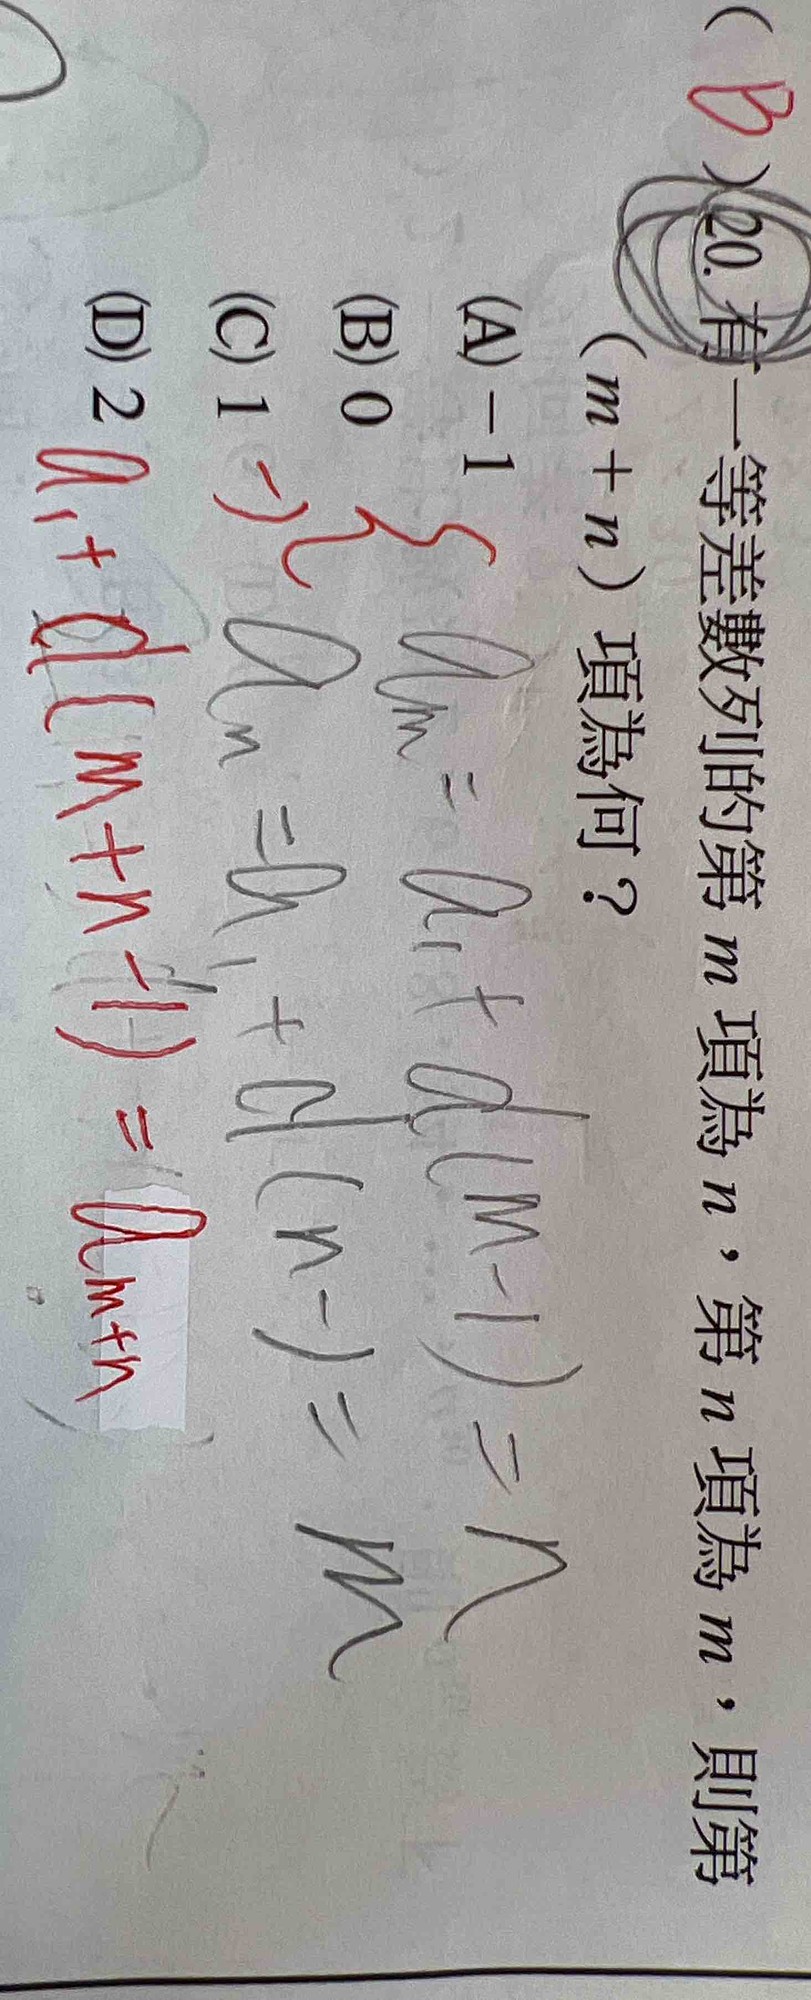 ( B ) 20. 有一等差數列的第 m 項為 n，第 n 項為 m，則第
（m＋n）項為何？
(A) －1
(B) 0
(C) 1
(D) 2
a_m = a_1 + d(m-1) = n
-) a_n = a_1 + d(n-) = m
a_1 + d(m+n-1) = a_m+n